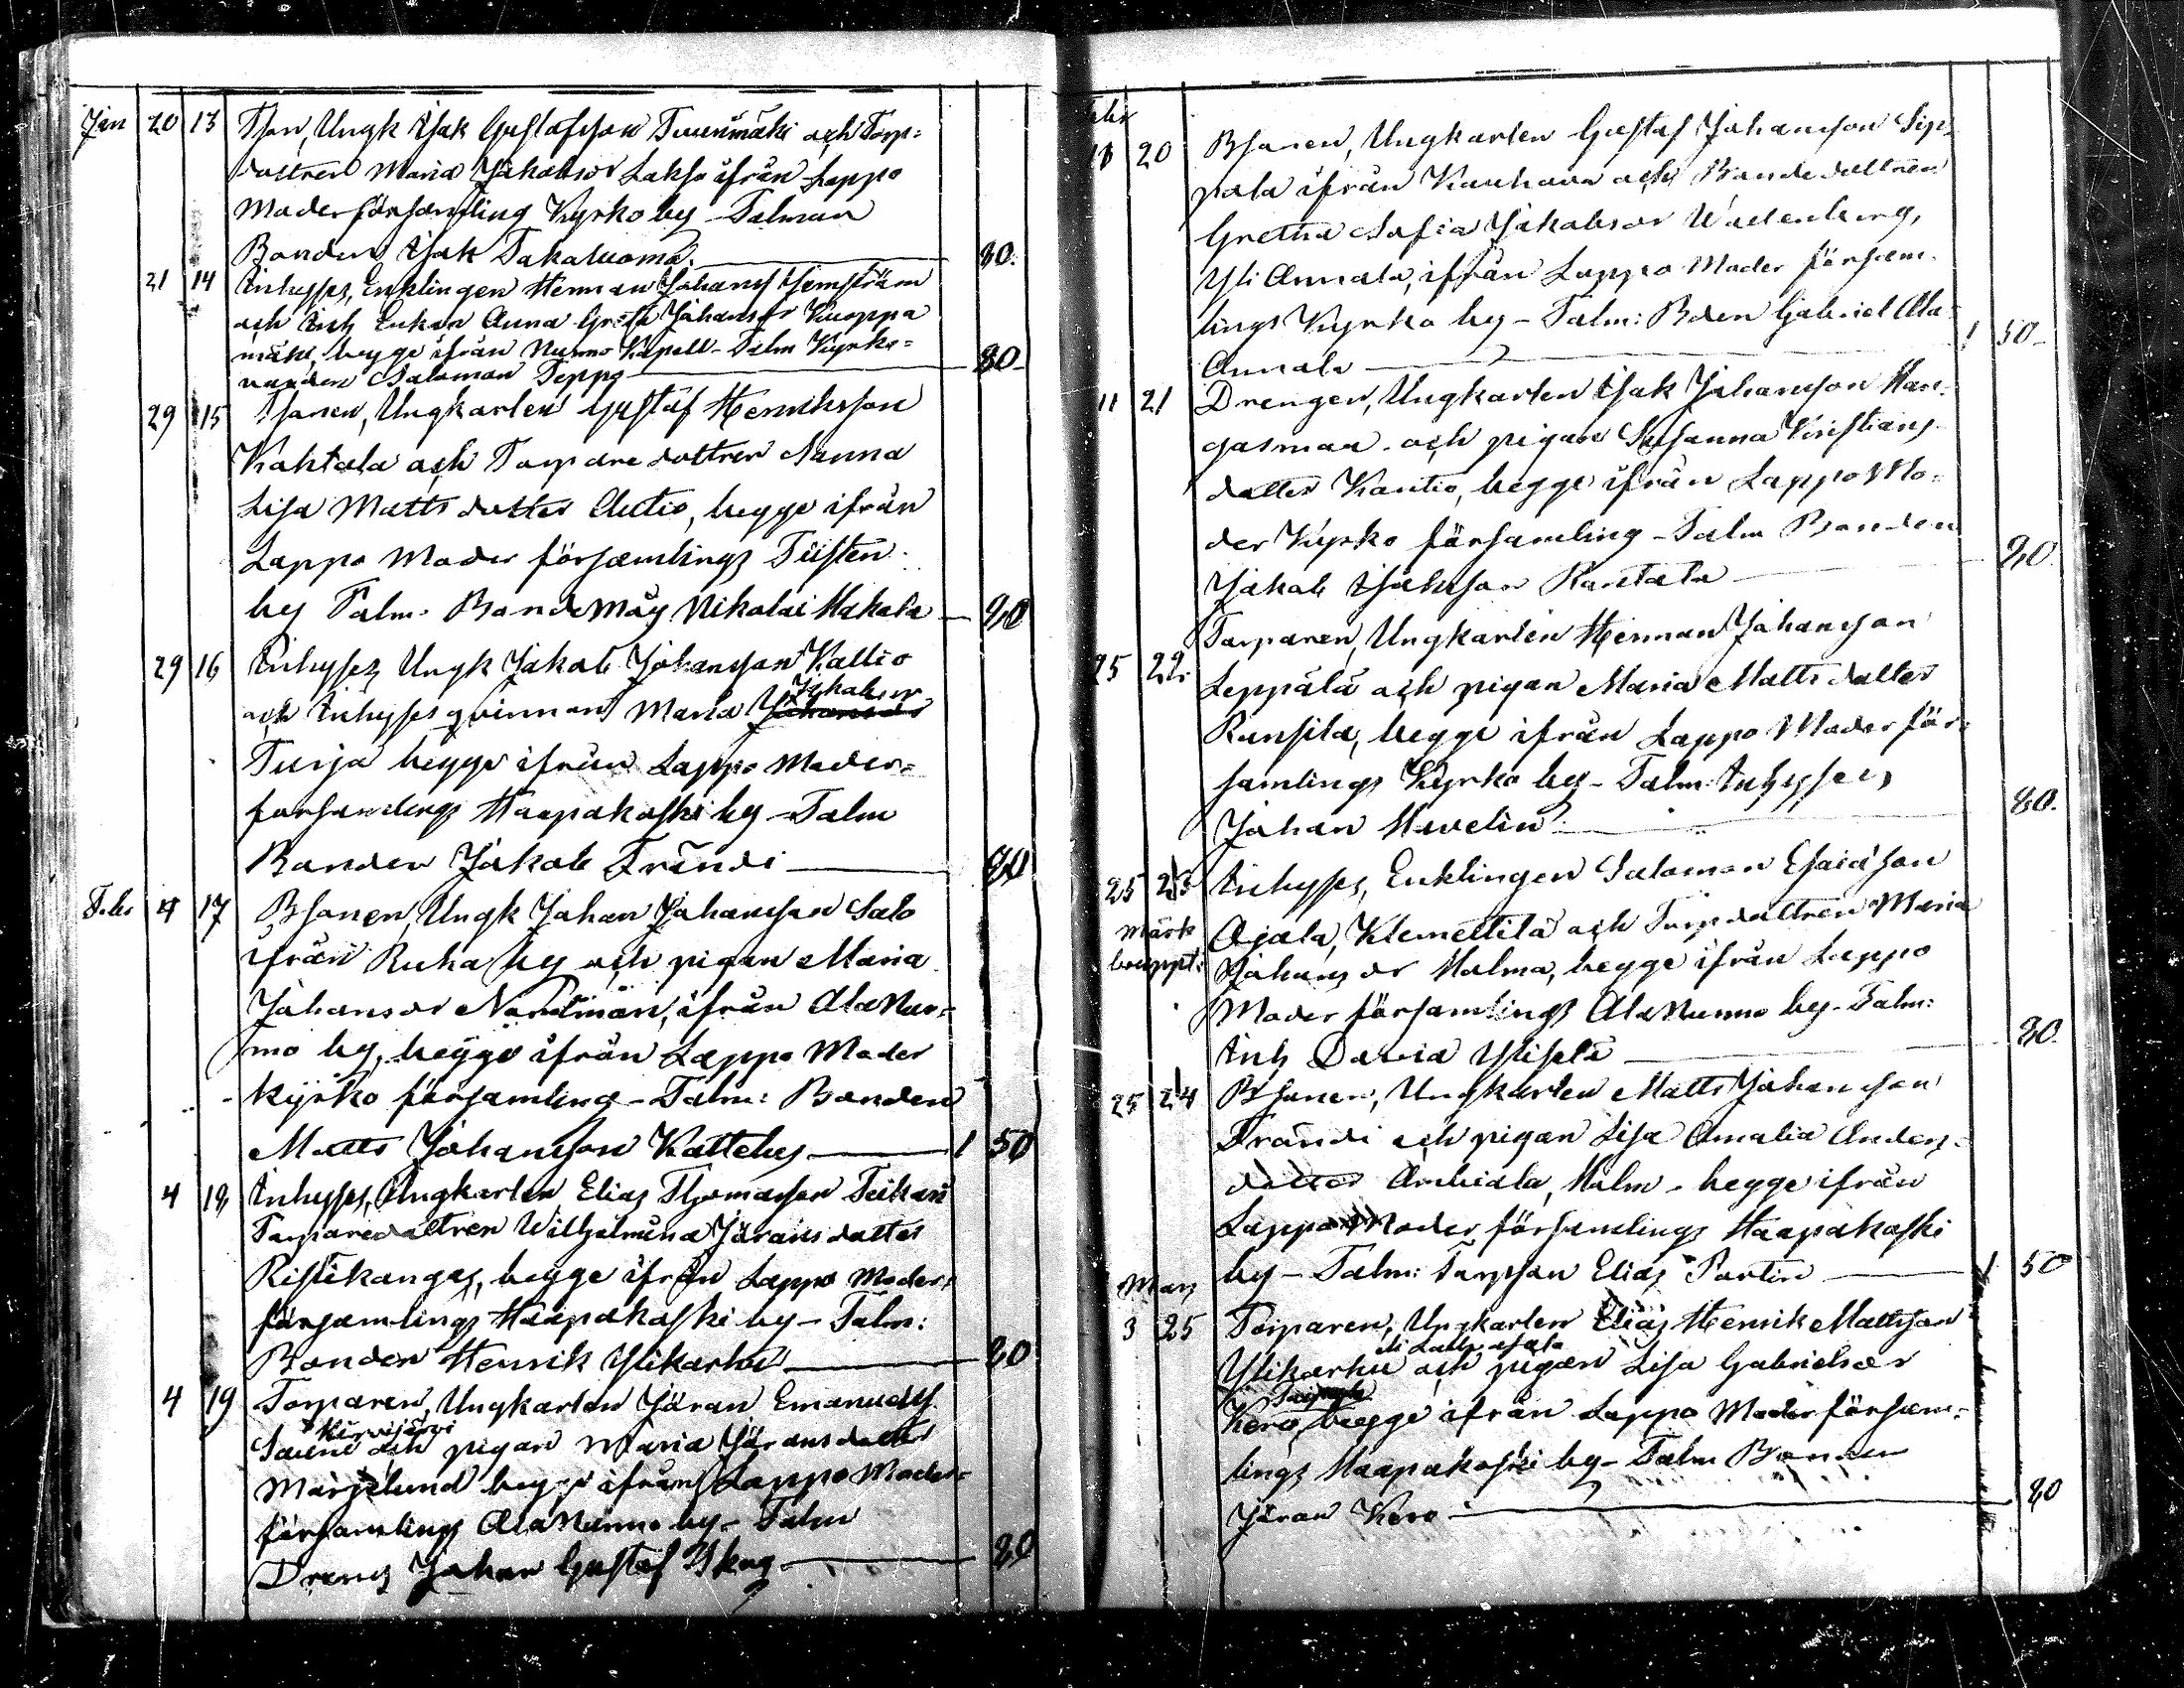 Jan 20 13 Tson, Ungk Isak Gustafsson Tuurinmäki och Torp=
dottren Maria Jakobsdr Lakso ifrån Lappo
Moderförsamling Kyrko by - Talman
Bonden Isak Takaluoma. 80.
21 14 Inhyses, Enklingen Herman Johanss Hemström
och Inh Enkan Anna Greta Johansdr Kuoppa
mäki, begge ifrån Nurmo Kapell - Talm Kyrko=
värden Salomon Seppo 80
29 15 Tsonen, Ungkarlen Gustaf Henriksson
Kahtala och Torparedottren Sanna
Lisa Matts dotter Autio, begge ifrån
Lappo Moder församlings Tiisten
by Talm. Bondemåg Nikolai Hakala 80
29 16 Inhyses Ungk Jakob Johansson Kallio
och Inhyses qvinnan Maria Johansdr Jakobsdr
Turja begge ifrån Lappo Moder=
församlings Haapakoski by - Talm
Bonden Jakob Frändi 80
Febr 4 17 Bsonen, Ungk Johan Johansson Salo
ifrån Ruha by och pigan Maria
Johansdr Nordman, ifrån AlaNur=
mo by, begge ifrån Lappo Moder
kyrko församling - Talm: Bonden
Matts Johansson Kattelus 1 50
4 18 Inhyses, Ungkarlen Elias Thomasson Teikari
Torparedottren Wilhelmina Jöransdotter
Ristikangas, begge ifrån Lappo Moder=
församlings Haapakoski by - Talm:
Bonden Henrik Ylikarhu 80
4 19 Torparen, Ungkarlen Jöran Emanuelss.
Hirvijärvi
och pigan Maria Jöransdotter
Marjelund begge ifrån Lappo Moder=
församlings AlaNurmo by - Talm
Dreng Johan Gustaf Skog 80
Febr
18 20 Bsonen, Ungkarlen Gustaf Johansson Sip=
pola ifrån Kauhava och Bondedottren
Gretha Sofia Jakobsdr Wadenberg,
Yli Annala, ifrån Lappo Moder försam-
lings Kyrko by - Talm: Bden Gabriel Ala
Annala 1 50
11 21 Drengen, Ungkarlen Isak Johansson Kan-
gasmaa och pigan Susanna Kristians
dotter Kautio, begge ifrån Lappo Mo=
der Kyrko församling - Talm Bonden
Jakob Isaksson Rantala 80
Torparen, Ungkarlen Herman Johansson
25 22. Leppälä och pigan Maria Matts dotter
Runsila, begge ifrån Lappo Moder för=
samlings Kyrko by - Talm: Inhyses
Johan Hevelin 80.
25 23 Inhyses, Enklingen Salomon Esaiasson
Märk Ojala, Klemettilä och Torpdottren Maria
Johans dr Malma, begge ifrån Lappo
Moder församlings AlaNurmo by - Talm:
Inh David Yliselä 80
25 24 Bsonen, Ungkarlen Matts Johansson
Frändi och pigan Lisa Amalia Anders=
dotter Anhiala, Malm - begge ifrån
Lappo Moder församlings Haapakoski
by - Talm: Torpson Elias Portin 1 50
Mars
3 25 Torparen, Ungkarlen Elias Henrik Mattsson
Ylikarhu och pigan Lisa Gabrielsdr
Kero, begge ifrån Lappo Moder försam=
lings Haapakoski by - Talm Bonden
Jöran Kero 80